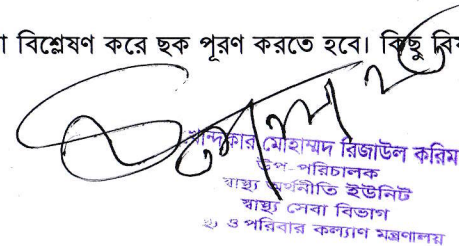 বিশ্লেষণ করে ছক পূরণ করতে হবে। কিছু
খোন্দকার মোহাম্মদ রিজাউল করিম
উপ-পরিচালক
স্বাস্থ্য অর্থনীতি ইউনিট
স্বাস্থ্য সেবা বিভাগ
ও পরিবার কল্যাণ মন্ত্রণালয়